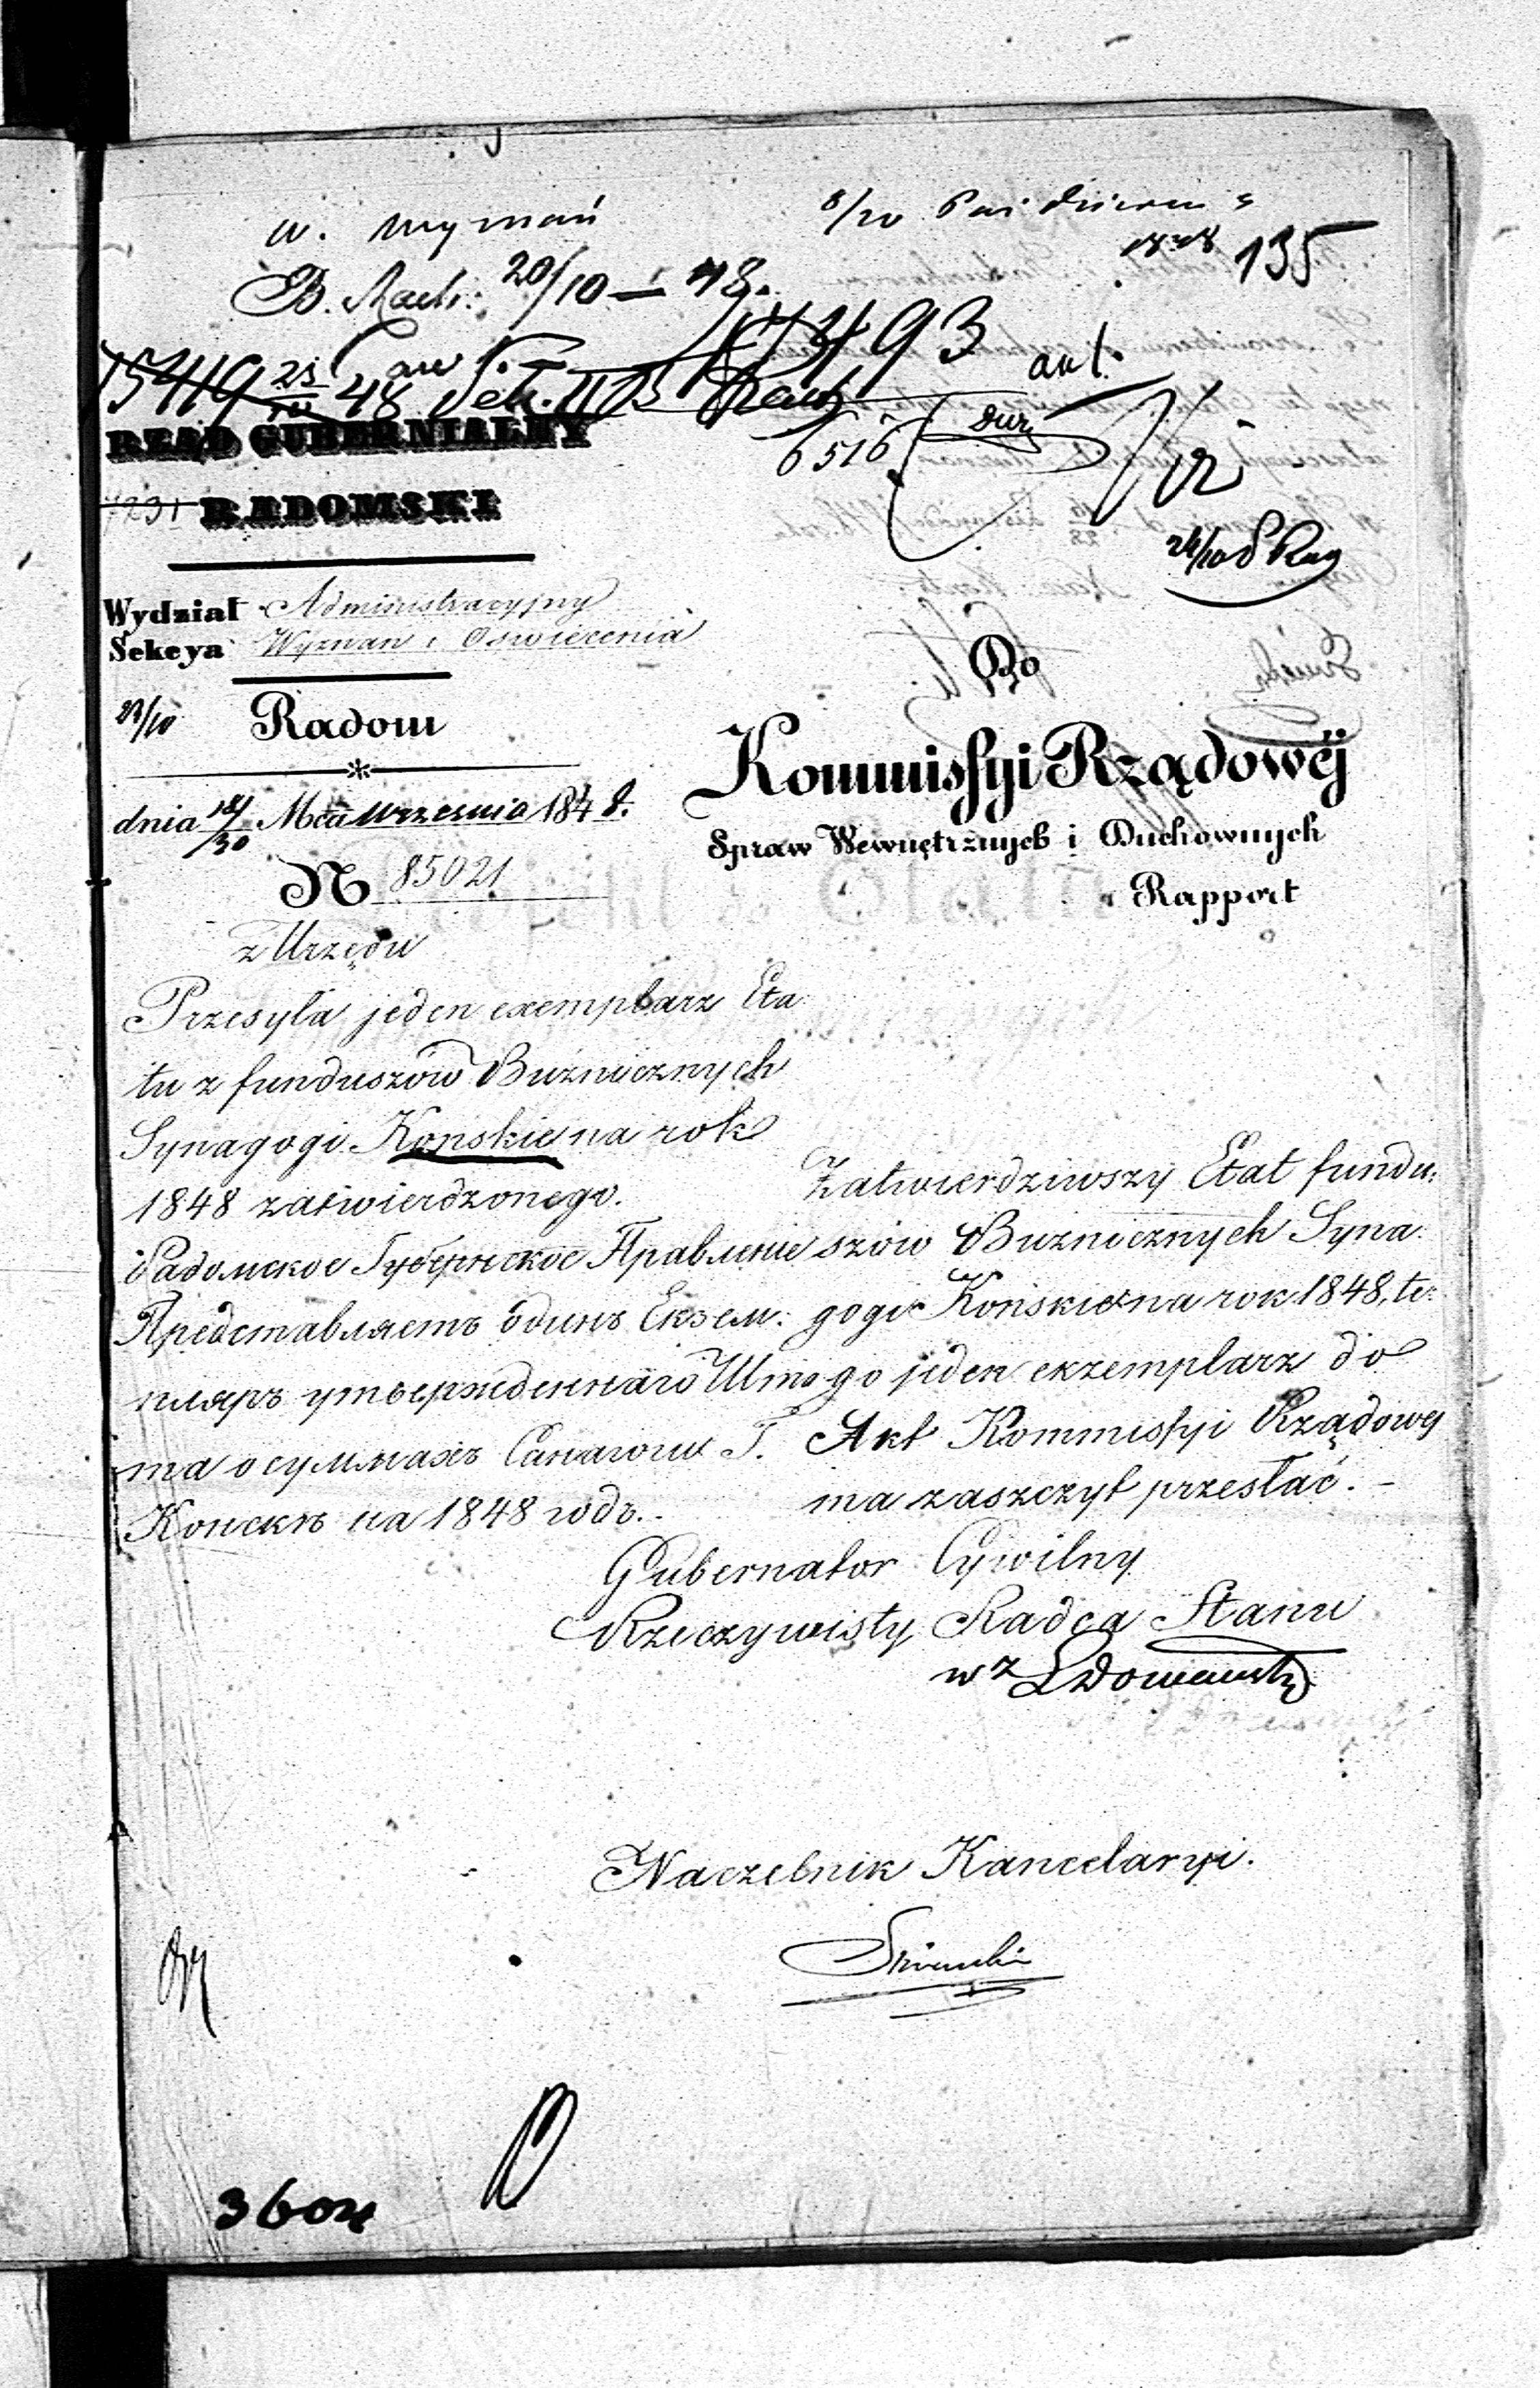 w. wyznań
8/20 Października
1848 135
B. Rach: 20/10 – 48.
15419 23/10 48 Sek. Rach
17493
akt.
6516
24/10
RZĄD GUBERNIALNY
7231 RADOMSKI
Wydział Administracyjny
Sekcya Wyznań i Oswiecenia
Radom
dnia 18/30 Mca Września 1848.
N 85021
Do
Kommissyi Rządowéj
Spraw Wewnętrznych i Duchownych
Rapport
z Urzędu
Przesyła jeden exemplarz Eta
tu z funduszów Buźnicznych
Synagogi Końskie na rok
1848 zatwierdzonego.
Радомское Губернское Правление
Представляетъ одинъ Екзем:
пляръ утвержденнаго Шта
та о суммахъ Синагоги Г.
Конскъ на 1848 годъ.
Zatwierdziwszy Etat fundu:
szów Buźnicznych Syna:
gogi Końskie na rok 1848, te:
go jeden exzemplarz do
Akt Kommissyi Rządowej
ma zaszczyt przesłać. –
Gubernator Cywilny
Rzeczywisty Radca Stanu
wz
Naczelnik Kancelaryi.
3604